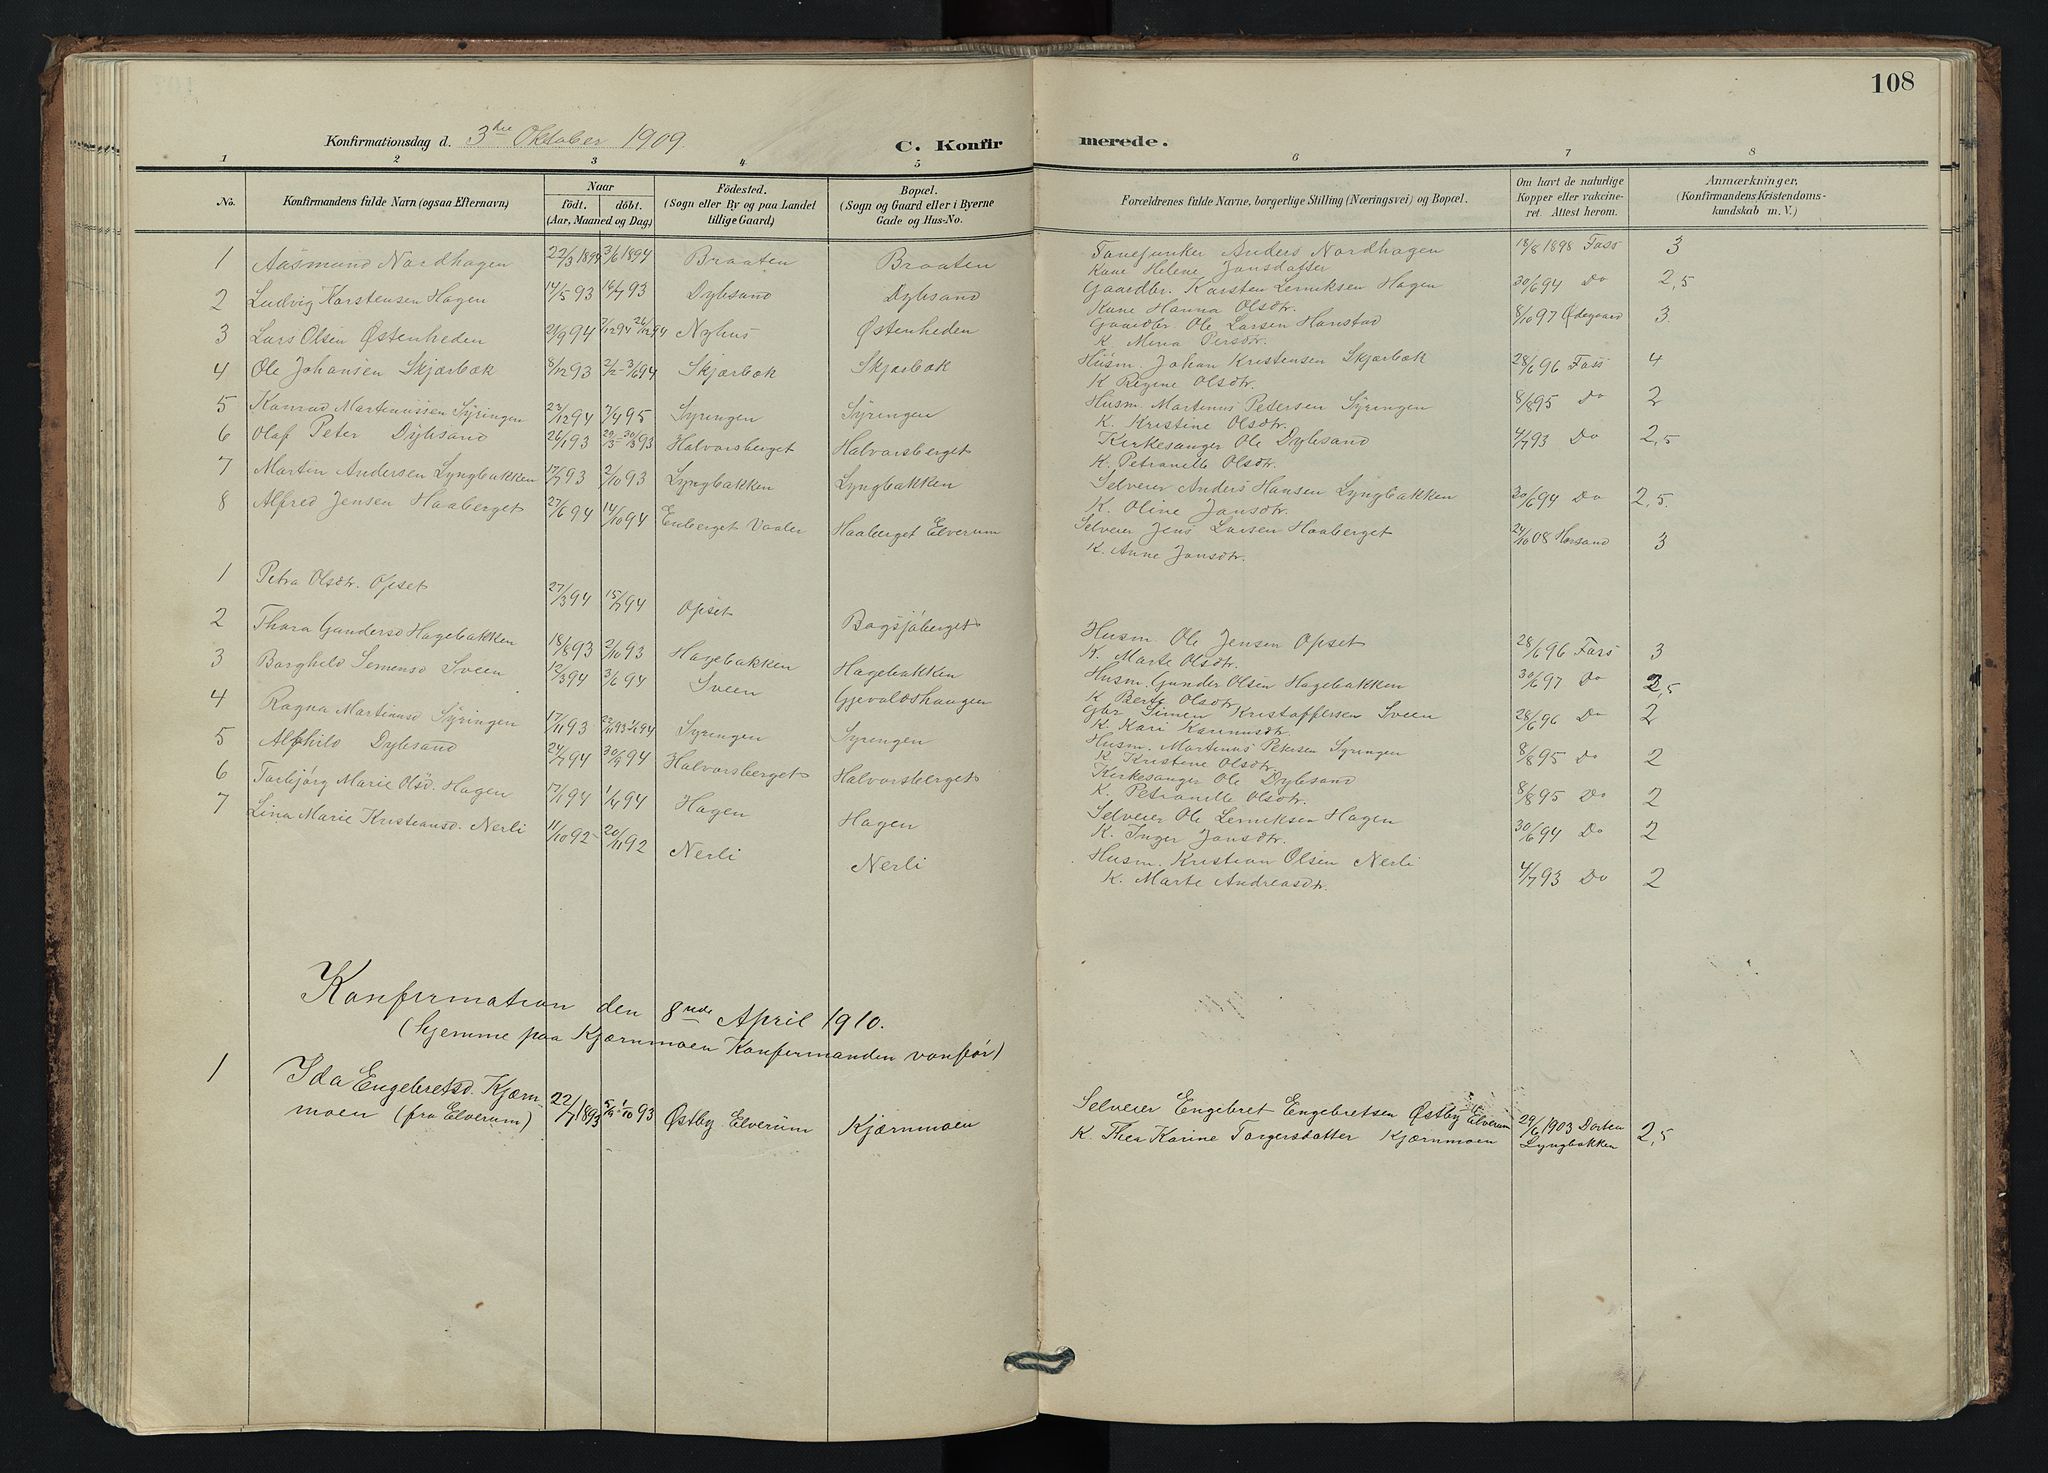 108
Konfirmationsdag d. 3die Oktober 1909
C. Konfirmerede.
1 2 3 4 5 6 7 8
No. Konfirmandens fulde Navn (ogsaa Efternavn). Naar födt. döbt. (Aar, Maaned og Dag). Födested. (Sogn eller By og paa Landet tillige Gaard). Bopæl. (Sogn og Gaard eller i Byerne Gade og Hus-No. Forældrenes fulde Navne, borgerlige Stilling (Næringsvei) og Bopæl. Om havt de naturlige Kopper eller vakcineret. Attest herom. Anmærkninger. (Konfirmandens Kristendomskundskab m. V.)
1 Aasmund Nordhagen 22/3 1894 3/6 1894 Braaten Braaten Fanejunker Anders Nordhagen 18/8 1898 Fass 3
Kone Helene Jonsdatter
2 Ludvig Karstensen Hagen 14/5 93 16/7 93 Dylesand Dylesand Gaardbr. Karsten Lemiksen Hagen 30/6 94 Do 2,5
Kone Hanna Olsdtr.
3 Lars Olsen Østenheden 21/9 94 7/12 94 26/12 94 Nyhus Østenheden Gaardbr. Ole Larsen Hanstad 8/10 97 Ødegaard 3
K. Mina Persdtr.
4 Ole Johansen Skjærbæk 8/12 93 2/2 - 3/6 94 Skjærbæk Skjærbæk Husm. Johan Kristensen Skjærbæk 28/6 96 Fass 4
K. Regine Olsdtr.
5 Konrad Martinussen Syringen 23/12 94 7/4 95 Syringen Syringen Husm. Martinus Petersen Syringen 8/8 95 Do 2
K. Kristine Olsdtr.
6 Olaf Peter Dylesand 26/1 93 20/3 - 30/3 93 Halvorsberget Halvorsberget Kirkesanger Ole Dylesand 4/7 93 Do 2,5
K. Petronille Olsdtr.
7 Martin Andersen Lyngbakken 17/7 93 2/10 93 Lyngbakken Lyngbakken Selveier Anders Hansen Lyngbakken 30/6 94 Do 2,5.
K. Oline Jonsdtr.
8 Alfred Jensen Haaberget 27/6 94 14/10 94 Enberget Vaaler Haaberget Elverum Selveier Jens Larsen Haaberget 24/10 08 3
K. Anne Jonsdtr.
1 Petra Olsdtr. Opset 27/3 94 15/7 94 Opset Bogsjøberget Husm. Ole Jensen Opset 28/6 96 Fass 3
K. Marte Olsdtr.
2 Thora Gundersd Hagebakken 18/8 93 2/10 93 Hagebakken Hagebakken Husm. Gunder Olsen Hagebakken 30/6 97 Do 2,5
K. Berte Olsdtr.
3 Borghild Simensd Sveen 12/3 94 3/6 94 Sveen Gjevaldshaugen Gbr Simen Kristoffersen Sveen 28/6 96 Do 2
K. Kari
4 Ragna Martinusd Syringen 17/11 93 Syringen Syringen Husm. Martinus Petersen Syringen 8/8 95 Do 2
K Kristine Olsdtr.
5 Alfhild Dylesand 24/7 94 30/9 94 Halvorsberget Halvorsberget Kirkesanger Ole Dylesand 8/8 95 Do 2
K. Petronille Olsdtr.
6 Torbjørg Marie Olsd. Hagen 17/1 94 Hagen Hagen Selveier Ole Lemiksen Hagen 30/6 94 Do 2
K. Inger Jonsdtr.
7 Lina Marie Kristiansd. Nerli 11/10 92 - 20/11 92 Nerli Nerli Husm. Kristian Olsen Nerli 4/7 93 Do 2
K. Marte Andreasdtr.
Konfirmation den 8nde April 1910.
(hjemme paa Kjærnmoen Konfirmanden vanfør)
1 Ida Engebretsd. Kjærn- 22/7 1893 1/10 93 Østby Elverum Kjærnmoen Selveier Engebret Engebretsen Østby Elverum 29/6 1903 Dorten 2,5
moen (fra Elverum) K. Thea Karine Torgersdatter Kjærnmoen Lyngbakken